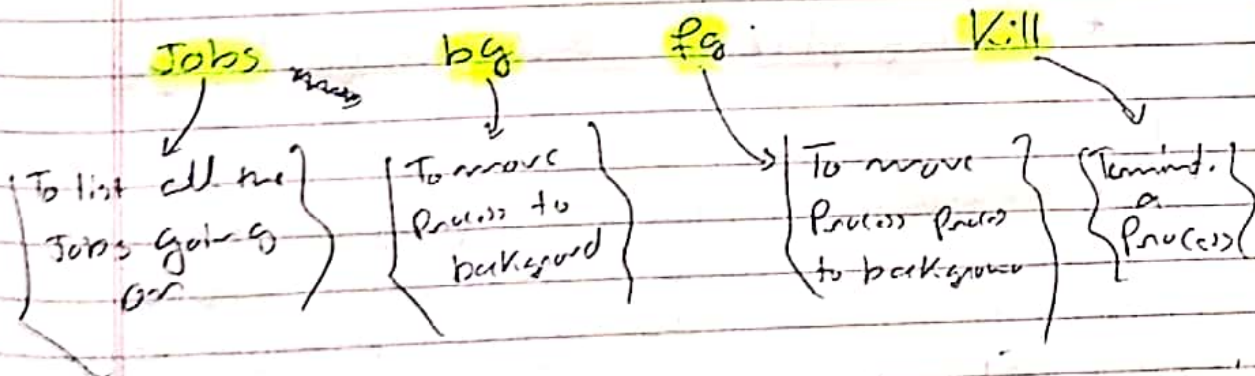 Jobs bg fg Kill
To list all the
Jobs going
on
To move
Process to
background
To move
Process Process
to background
Termint.
a
Process